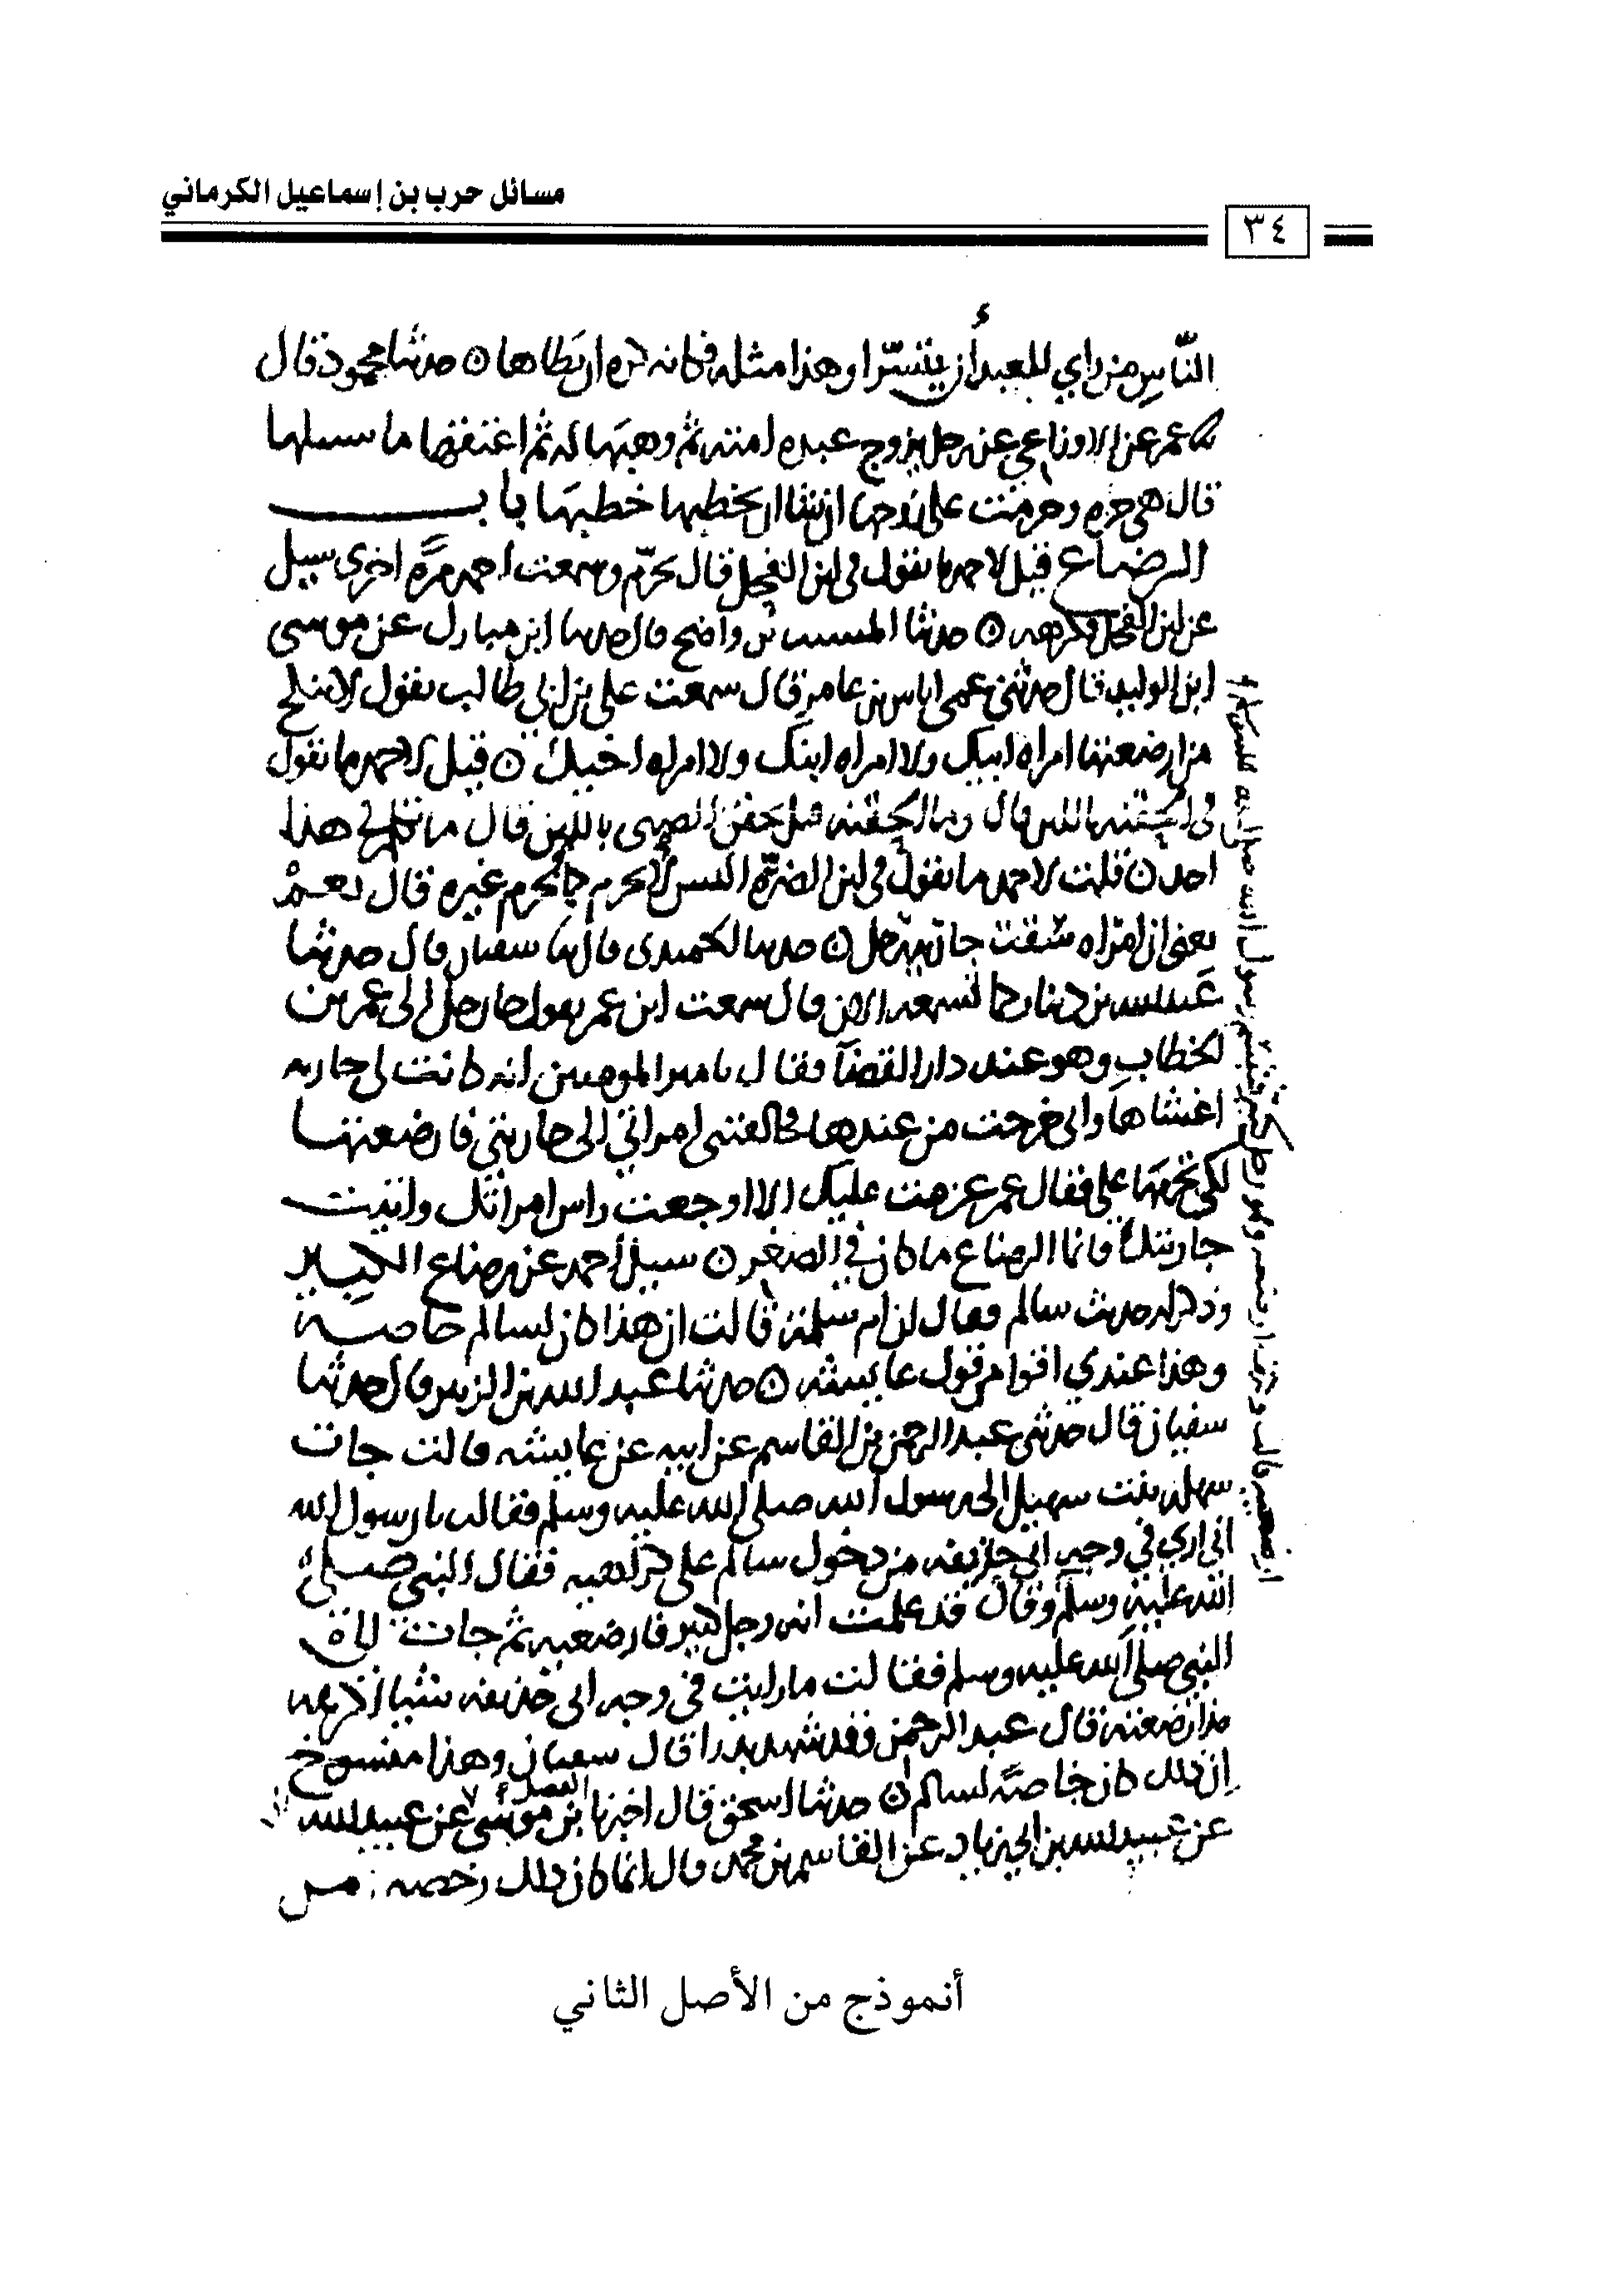 مسائل حرب بن إسماعيل الكرماني
٣٤
النّاس من راي للعبد أن يتسرّا وهذا مثله فكانه كره ان يَطاها ٥ حدثنا محمود قال
عمر عن الاوزاعي عن رجل يزوج عبده امته ثم وهبَها له ثم اعتقها ما سبيلها
قال هي حره وحرمت على زوجها ان شا ان يخطبها خطبَها باب
الرضاع قيل لاحمد ما تقول في لبن الفحل قال يحَرّم وسمعت احمد مرةً اخرى سيل
عن لبن الفحل فكرهه ٥ حدثنا المسيب بن واضح قال حدثنا ابن مبارك عن موسى
ابن الوليد قال حدثني عمى اياس بن عامر قال سمعت على بن ابي طالب يقول لا تنكح
من ارضعتها امراه ابيك ولا امراه ابنك ولا امراه اخيك ٥ قيل لاحمد ما تقول
في الحقنه باللبن قال وما الحقنه قيل حقن الصبى باللبن قال ما هذا
احد ٥ قلت لاحمد ما تقول في لبن اليس يحرم كما يحرم غيره قال نعم
يعنى ان امراه سقت جاريه ٥ حدثنا الحميدى قال سفيان قال حدثنا
عبد الله بن دينار قال سمعت ابن عمر يقول جا رجل الى عمر بن
الخطاب وهو عند دار القضآ فقال يامير المومنين انه كانت لى جاريه
اغشاها وانى خرجت من عندها فخالفتنى امراتي الى جاريتي فارضعتها
لكي تحرمَها علي فقال عمر عزمت عليك الا اوجعت راس امراتك واتيت
جاريتك فانما الرضاع ما كان في الصغر ٥ سيل احمد عن رضاع الكبير
وذكر له حديث سالم فقال ان ام سلمة قالت ان هذا كان لسالم خاصه
وهذا عندي اقوا من قول عايشه ٥ حدثنا عبد الله بن الزبير قال حدثنا
سفيان قال حدثنى عبد الرحمن بن القاسم عن ابيه عن عايشه قالت جات
سهله بنت سهيل الى رسول الله صلى الله عليه وسلم فقالت يا رسول الله
انى اري في وجه ابي حذيفه من دخول سالم على كراهيه فقال النبي صلى
الله عليه وسلم وقال قد علمت انه رجل كبير فارضعيه ثم جات
النبي صلى الله عليه وسلم فقالت ما رايت في وجه ابى حذيفه شيا اكرهه
مذ ارضعته قال عبد الرحمن فقد شهد بدرا قال سفيان وهذا منسوخ
ان ذلك كان خاصةً لسالم ٥ حدثنا اسحق قال اخبرنا الفضل بن موسى عن عبيد الله
عن عبيد الله بن ابي زياد عن القاسم بن محمد قال انما كان ذلك رخصه من
ارضعيه قالت وكيف ارضعه وهو رجل كبير فتبسم رسول الله صلى الله عليه
أنموذج من الأصل الثاني